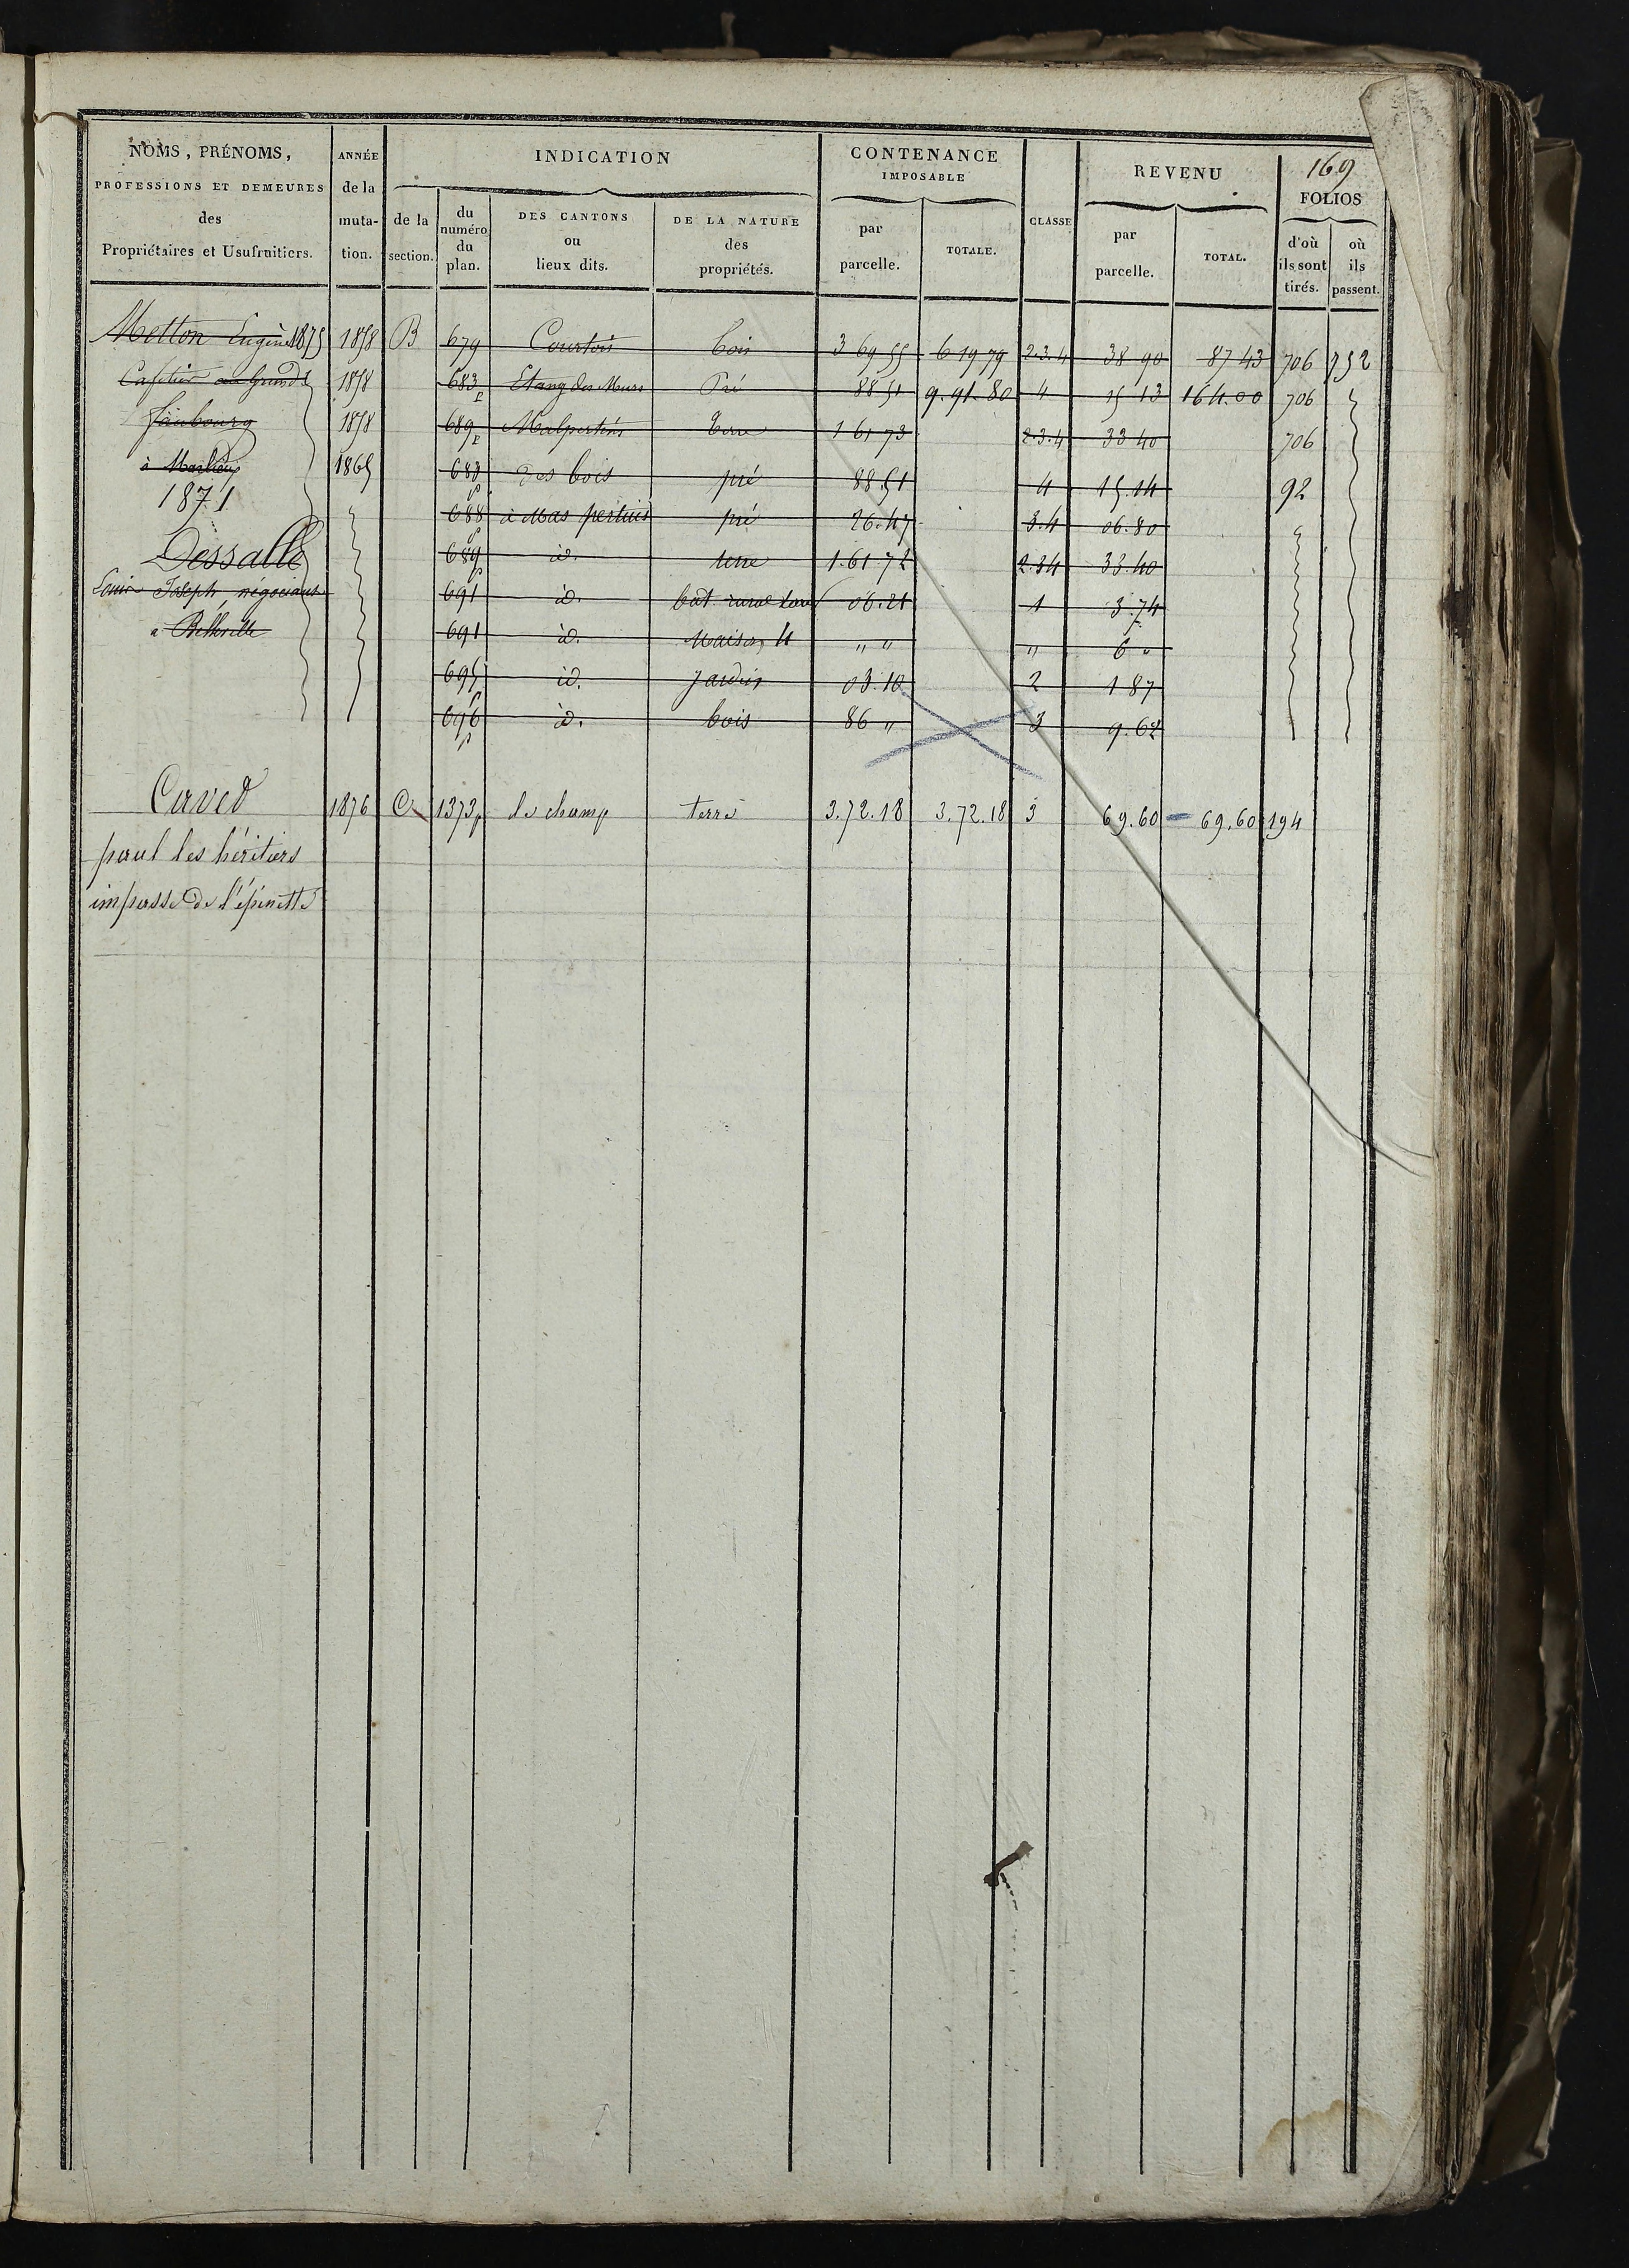 169
NOMS, PRÉNOMS,
PROFESSIONS ET DEMEURES
des
Propriétaires et Usufruitiers.
ANNÉE
de la
muta-
tion.
INDICATION
de la
section.
du
numéro
du
plan.
DES CANTONS
ou
lieux dits.
DE LA NATURE
des
propriétés.
CONTENANCE
IMPOSABLE
par
parcelle.
TOTALE.
CLASSE
REVENU
par
parcelle.
TOTAL.
FOLIOS
d'où
ils sont
tirés.
où
ils
passent.
Metton Eugène 1875 1858 B 679 Courtois bois 3 69 55 6 19 79 2.3.4 38 90 87 43 706 752
Cafetier au Grand 1858 683 p Etang des Meurs Pré 88 51 9.91.80 4 15 13 164.00 706
faubourg 1858 689 p Malpertuis terre 1 61 73 2.3.4 33 40 706
à Marlieux 1865 683 p des bois pré 88.51 4 15.14 92
1871 688 p à Mas pertuis pré 26.47 3.4 06.80
Dessalle 689 p id. terre 1.61.72 2.34 33.40
Louis Joseph négociant 691 id. bât. rural 06.21 1 3.74
a Belleville 691 id. Maison 4 " " " 6 "
695 p id. Jardin 03.10 2 1 87
696 p id. bois 86 " 3 9.62
Caved 1876 C 1373p le champ terre 3.72.18 3.72.18 3 69.60 69.60 194
paul les héritiers
impasse de l'épinette